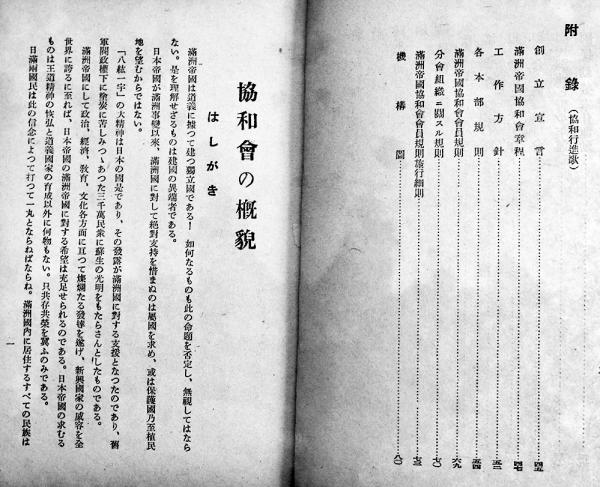 附錄（協和行進歌）
創立宣言……四五
滿洲帝國協和會章程……四七
工作方針……五一
各本部規則……五四
滿洲帝國協和會會員規則……六九
分會組織ニ關スル規則……七〇
滿洲帝國協和會會員規則施行細則……七三
機構圖……八〇
協和會の概貌
はしがき
滿洲帝國は道義に據つて建つ獨立國である！　如何なるものも此の命題を否定し、無視してはなら
ない。是を理解せざるものは建國の異端者である。
日本帝國が滿洲事變以來、滿洲國に對して絕對支持を惜まぬのは屬國を求め、或は保護國乃至植民
地を望むからではない。
「八紘一宇」の大精神は日本の國是であり、その發露が滿洲國に對する支援となつたのであり、舊
軍閥政權下に塗炭に苦しみつゝあつた三千萬民衆に蘇生の光明をもたらさんとしたものである。
滿洲帝國にして政治、經濟、敎育、文化各方面に亘つて燦爛たる發達を遂げ、新興國家の威容を全
世界に誇るに至れば、日本帝國の滿洲帝國に對する希望は充足せられるのである。日本帝國の求むる
ものは王道精神の恢弘と道義國家の育成以外に何物もない。只共存共榮を冀ふのみである。
日滿兩國民は此の信念によつて打つて一丸とならねばならぬ。滿洲國內に居住するすべての民族は
一